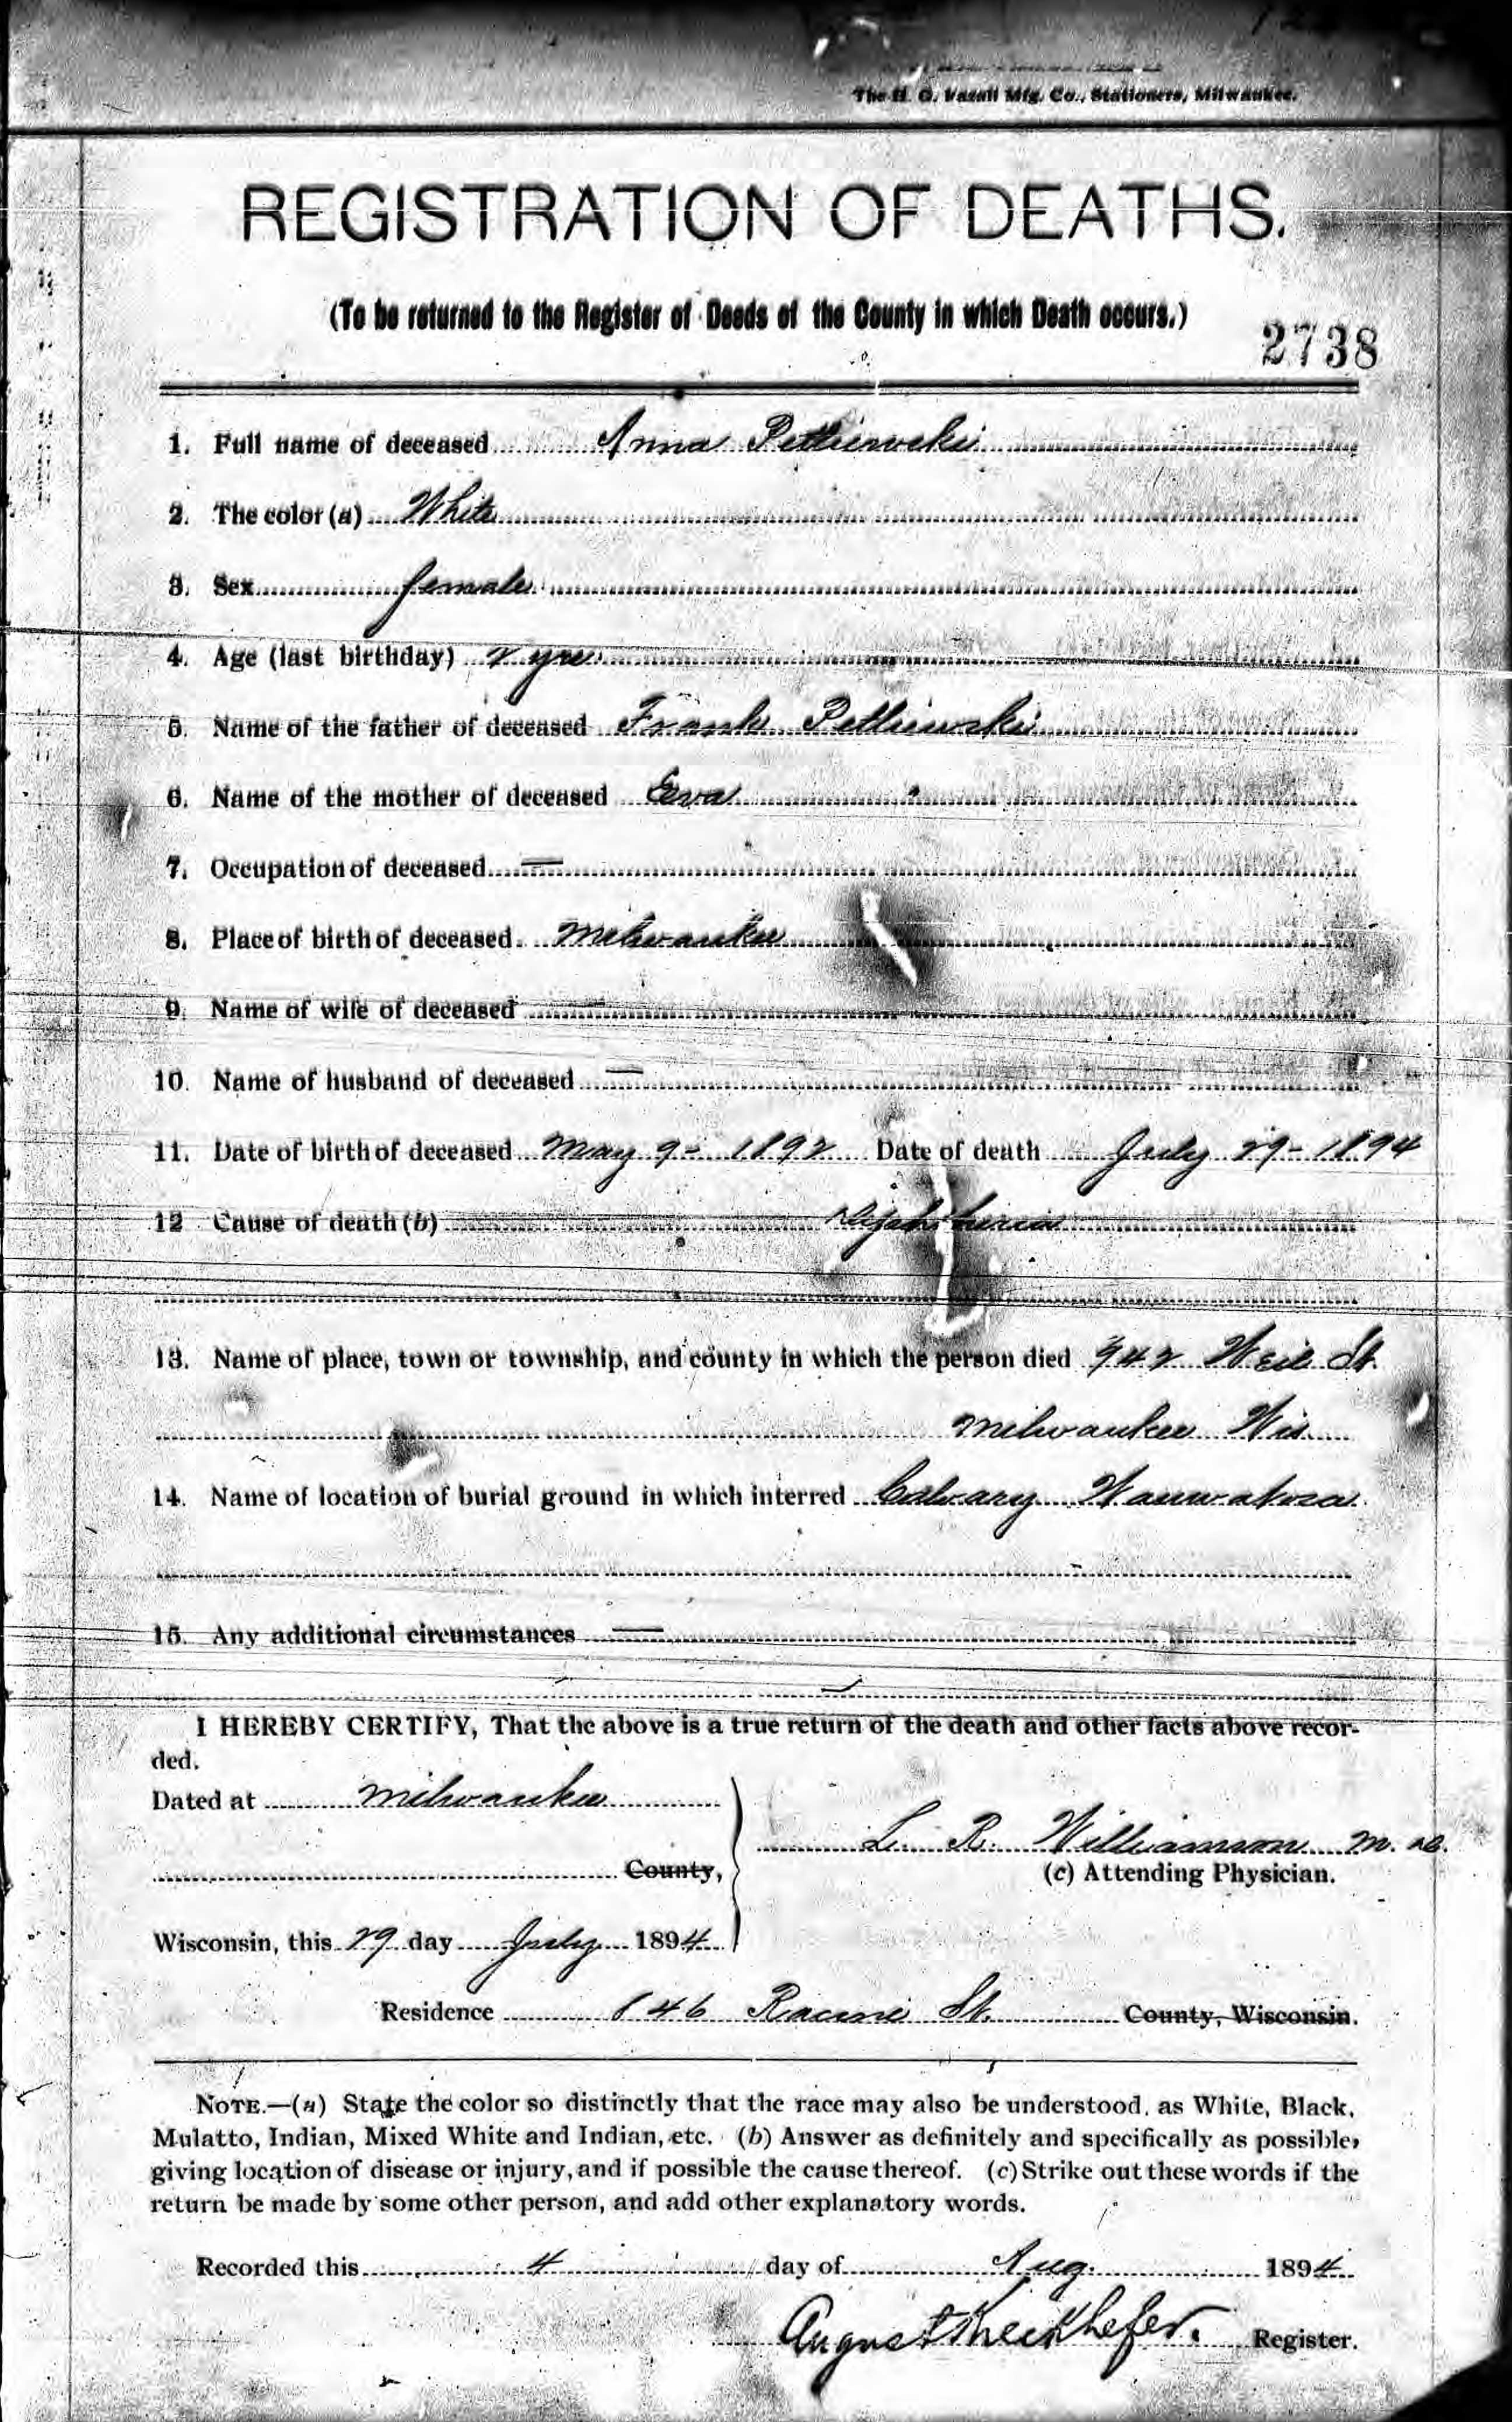 The H. G. Razall Mfg. Co., Stationers, Milwaukee.
REGISTRATION OF DEATHS.
(To be returned to the Register of Deeds of the County in which Death occurs.)
2738
1. Full name of deceased Anna Petliewski
2. The color (a) White
3. Sex female
4. Age (last birthday) 2 yrs
5. Name of the father of deceased Frank Petliewski
6. Name of the mother of deceased Eva
7. Occupation of deceased —
8. Place of birth of deceased Milwaukee
9. Name of wife of deceased —
10. Name of husband of deceased —
11. Date of birth of deceased May 9 - 1892 Date of death July 29 - 1894
12 Cause of death (b) Diphtheria
13. Name of place, town or township, and county in which the person died 942 Weil St.
Milwaukee Wis
14. Name of location of burial ground in which interred Calvary Wauwatosa
15. Any additional circumstances —
I HEREBY CERTIFY, That the above is a true return of the death and other facts above recor-
ded.
Dated at Milwaukee
L. R. Williamson M. D.
County,
(c) Attending Physician.
Wisconsin, this 29 day July 1894
Residence 846 Racine St. County, Wisconsin.
NOTE.—(a) State the color so distinctly that the race may also be understood, as White, Black,
Mulatto, Indian, Mixed White and Indian, etc. (b) Answer as definitely and specifically as possible,
giving location of disease or injury, and if possible the cause thereof. (c) Strike out these words if the
return be made by some other person, and add other explanatory words.
Recorded this 4 day of Aug. 1894
August Kieckhefer. Register.